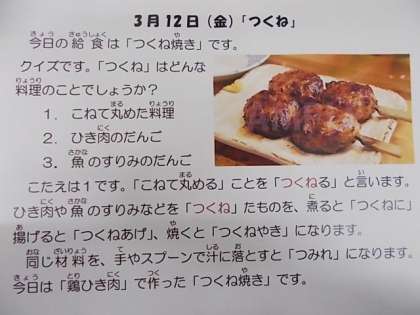 3月12日（金）「つくね」
今日の給食は「つくね焼き」です。
クイズです。「つくね」はどんな
料理のことでしょうか？
1．こねて丸めた料理
2．ひき肉のだんご
3．魚のすりみのだんご
こたえは1です。「こねて丸める」ことを「つくねる」と言います。
ひき肉や魚のすりみなどを「つくね」たものを、煮ると「つくねに」
揚げると「つくねあげ」、焼くと「つくねやき」になります。
同じ材料を、手やスプーンで汁に落とすと「つみれ」になります。
今日は「鶏ひき肉」で作った「つくね焼き」です。